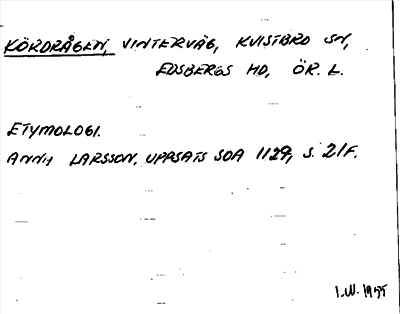 KÖRDRÅGEN, VINTERVÄG, KVISTBRO SN,
EDSBERGS HD, ÖR. L.
ETYMOLOGI.
ANNH LARSSON, UPPSATS SOA 1129, S. 21F.
I.W. 1955